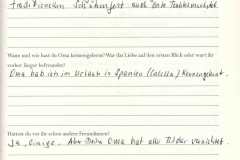 traditionellen Schützenfest
Wann und wie hast du Oma kennengelernt? War das Liebe auf den ersten Blick oder wart ihr
vorher länger befreundet?
Oma hab ich im Urlaub in Spanien (Calella) kennengelernt.
Hattest du vor ihr schon andere Freundinnen?
Ja, einige. Aber Deine Oma hat alle Bilder vernichtet.